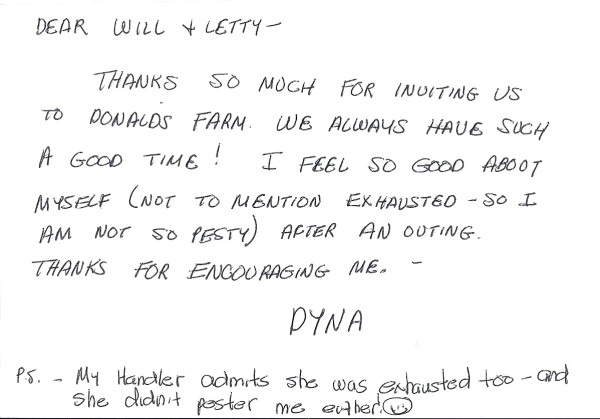 DEAR WILL + LETTY-
THANKS SO MUCH FOR INVITING US
TO DONALDS FARM. WE ALWAYS HAVE SUCH
A GOOD TIME! I FEEL SO GOOD ABOUT
MYSELF (NOT TO MENTION EXHAUSTED - SO I
AM NOT SO PESTY) AFTER AN OUTING.
THANKS FOR ENCOURAGING ME. -
DYNA
P.S. - My Handler admits she was exhausted too - and
she didn't pester me either ☺